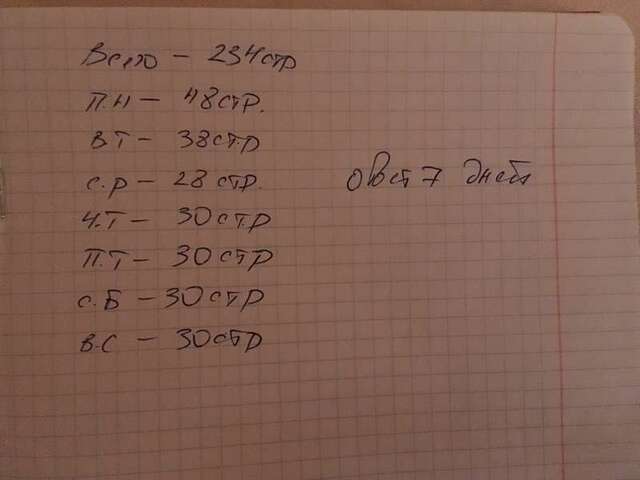 Всего - 234стр
П.Н - 48стр.
ВТ - 38стр
с.р - 28 стр.
ответ 7 дней
Ч.Т - 30стр
П.Т - 30стр
с.Б - 30стр
в.С - 30стр